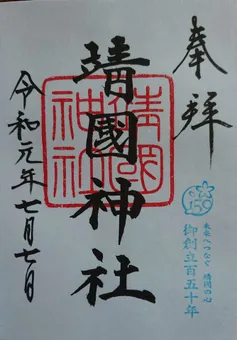 奉拝
靖國神社
靖國神社
令和元年七月七日
150
未来へつなぐ 靖國の心
御創立百五十年